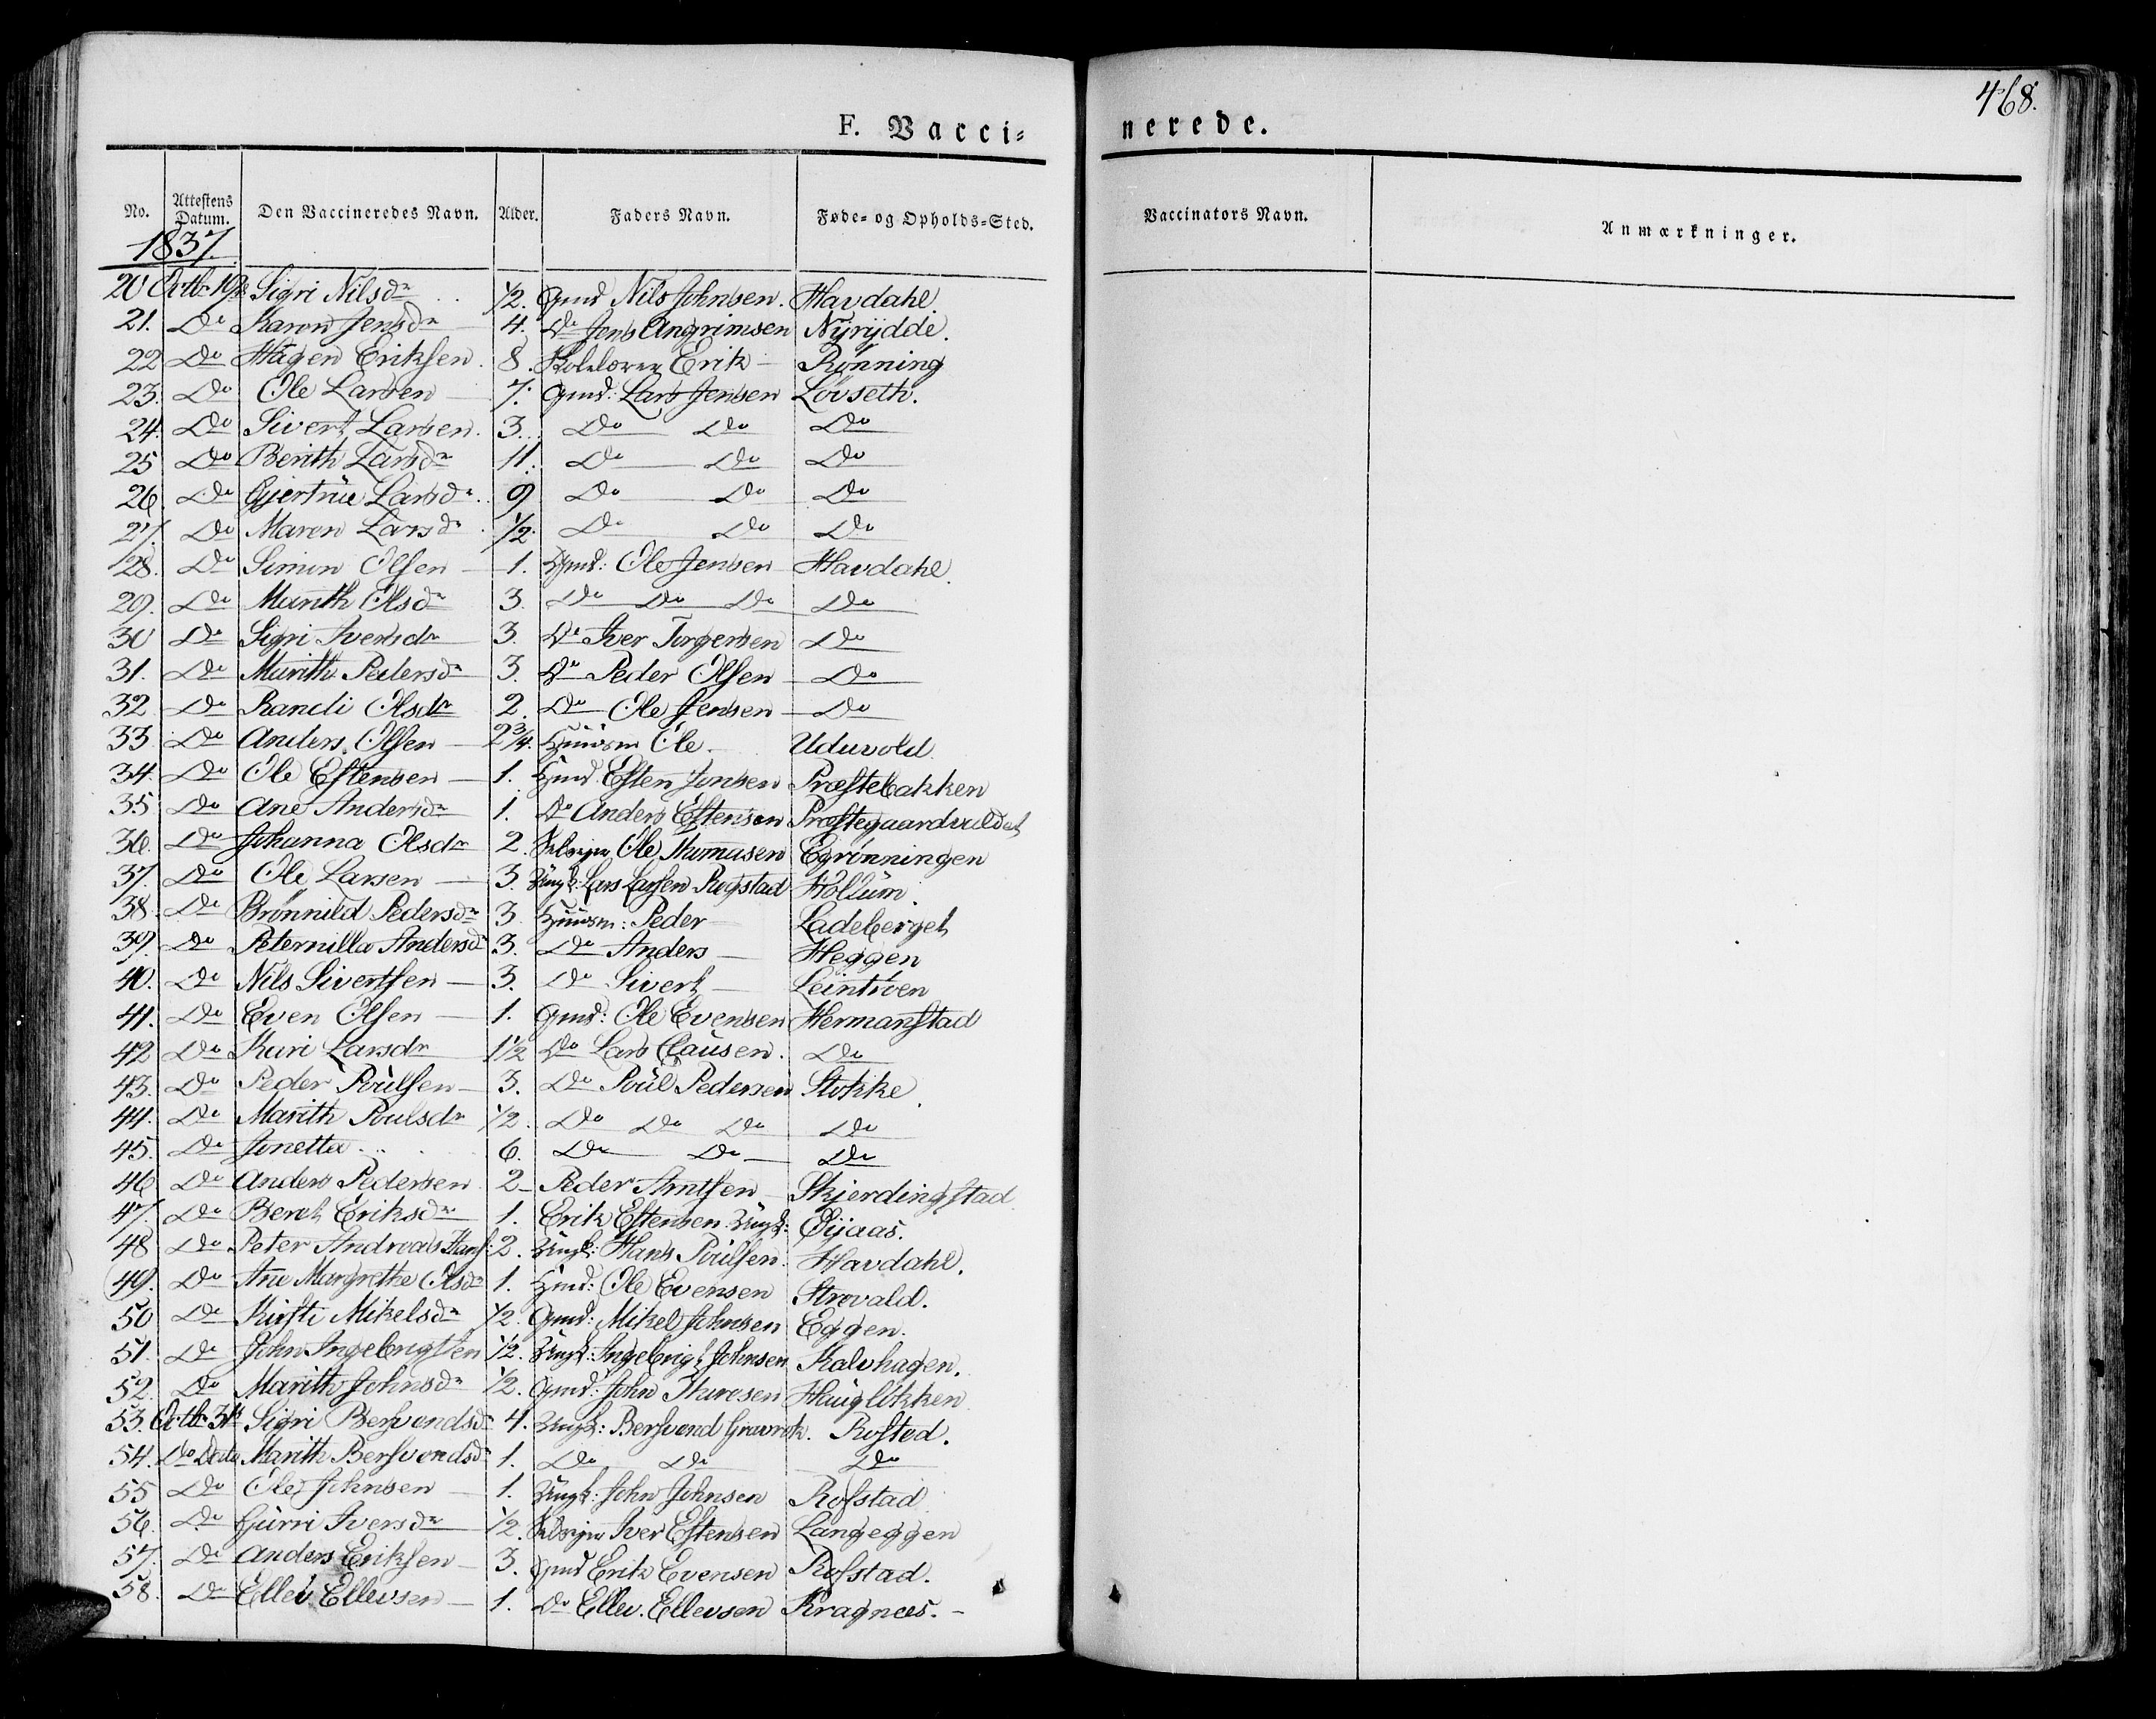 468.
F. Vacci- nerede.
No. Attestens Datum. Den Vaccineredes Navn. Alder. Faders Navn. Føde- og Opholds-Sted. Vaccinators Navn. Anmærkninger.
1837.
20 Octb: 19de Sigri Nilsdr 1/2. Gmd Nils Johnsen. Havdahl.
21. Do Karen Jensdr 4. Do Jens Angrimsen Nÿrÿdde.
22 Do Hagen Eriksen. 8. Skolelærer Erik - Rønning
23. Do Ole Larsen 7. Gmd: Lars Jensen Løvseth.
24. Do Sivert Larsen. 3. Do Do Do
25 Do Berith Larsdr 11. Do Do Do
26. Do Gjertrue Larsdr. 9 Do Do Do
27. Do Maren Larsdr 1/2. Do Do Do
28. Do Simon Olsen 1. Gmd: Ole Jensen Havdahl.
29. Do Marith Olsdr 3. Do Do Do Do
30 Do Sigri Iversdr 3. Do Iver Torgersen Do
31. Do Marith Pedersdr 3. Do Peder Olsen Do
32 Do Randi Olsdr 2. Do Ole Jensen Do
33. Do Anders Olsen 2 3/4. Huusm Ole Uduvold.
34. Do Ole Estensen 1. Esten Jonsen Præstebakken
35 Do Ane Andersdr 1. Do Anders Estensen Præstegaardvaldet
36. Do Johanna Olsdr 2. Ole Thomasen Egrønningen
37. Do Ole Larsen 3. Ungk: Lars Larsen Rogstad Hollum.
38. Do Brønnild Pedersdr 3. Huusm: Peder Ladeberget
39. Do Peternilla Andersdr 3. Do Anders Heggen
40. Do Nils Sivertsen 3. Do Sivert Leintrøen
41. Do Even Olsen 1. Gmd: Ole Evensen Hermanstad
42 Do Kari Larsdr 1 1/2 Do Lars Clausen. Do
43. Do Peder Poulsen 3. Do Poul Pedersen Stokke.
44. Do Marith Poulsdr 1/2. Do Do Do Do
45. Do Jonetta 6. Do Do Do
46 Do Anders Pedersen 2 Peder Arntsen Skjerdingstad
47. Do Beret Eriksdr 1. Erik Estensen Ungk: Øijaas.
48 Do Peter Andreas Hans: 2. Ungk: Hans Poulsen. Havdahl.
49. Do Ane Margrethe Olsdr 1. Ole Evensen
50 Do Kirsti Mikelsdr 1/2. Gmd: Mikel Johnsen Eggen.
51. Do John Ingebrigtsen 1/2. Ungk: Ingebrigt Johnsen Kalvhagen.
52. Do Marith Johnsdr 1/2. Gmd: John Thoresen Haugløkken
53. Octb: 31te Sigri Bersvendsdr 4. Ungk: Bersvend Gravrok. Rosted.
54. Do Dato Marith Bersvendsdr 1. Do Do Do
55 Do Ole Johnsen 1. Ungk: John Johnsen Rofstad
56. Do Gurri Iversdr 1/2. Iver Estensen Langeggen
57. Do Anders Eriksen 3. Gmd Erik Evensen Rofstad.
58. Do Ellev Ellevsen 1. Do Ellev. Ellevsen Kragnæs.